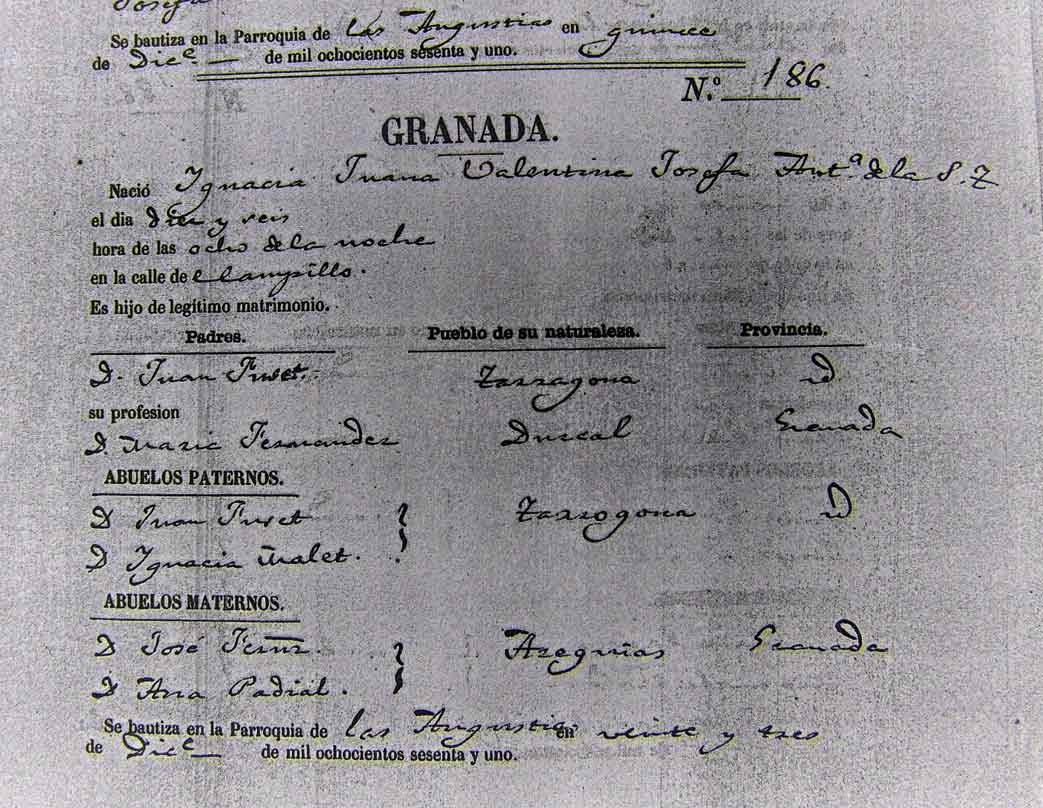 Josefa
Se bautiza en la Parroquia de las Angustias en quince
de Dicᵉ de mil ochocientos sesenta y uno.
N.º 186.
GRANADA.
Nació Ygnacia Juana Valentina Josefa Antª de la S. Z
el dia diez y seis
hora de las ocho de la noche
en la calle de el Campillo.
Es hijo de legítimo matrimonio.
Padres. Pueblo de su naturaleza. Provincia.
D. Juan Fuset. Tarragona id
su profesion
D. Maria Fernandez Durcal Granada
ABUELOS PATERNOS.
D Juan Fuset Tarragona id
D Ygnacia Malet.
ABUELOS MATERNOS.
D José Fernz. Granada
D Ana Padial.
Se bautiza en la Parroquia de las Angustias en veinte y tres
de Dicᵉ de mil ochocientos sesenta y uno.